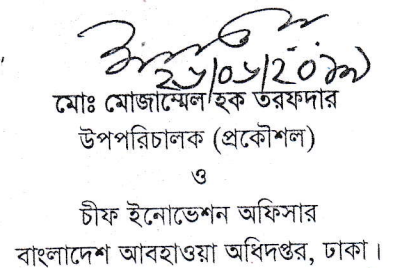 মোঃ মোজাম্মেল হক তরফদার
উপপরিচালক (প্রকৌশল)
ও
চীফ ইনোভেশন অফিসার
বাংলাদেশ আবহাওয়া অধিদপ্তর, ঢাকা।